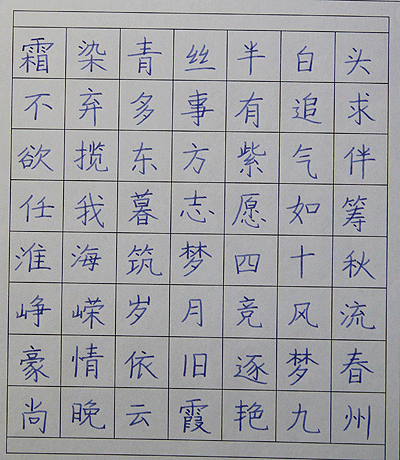 霜染青丝半白头
不弃多事有追求
欲揽东方紫气伴
任我暮志愿如筹
淮海筑梦四十秋
峥嵘岁月竞风流
豪情依旧逐梦春
尚晚云霞艳九州